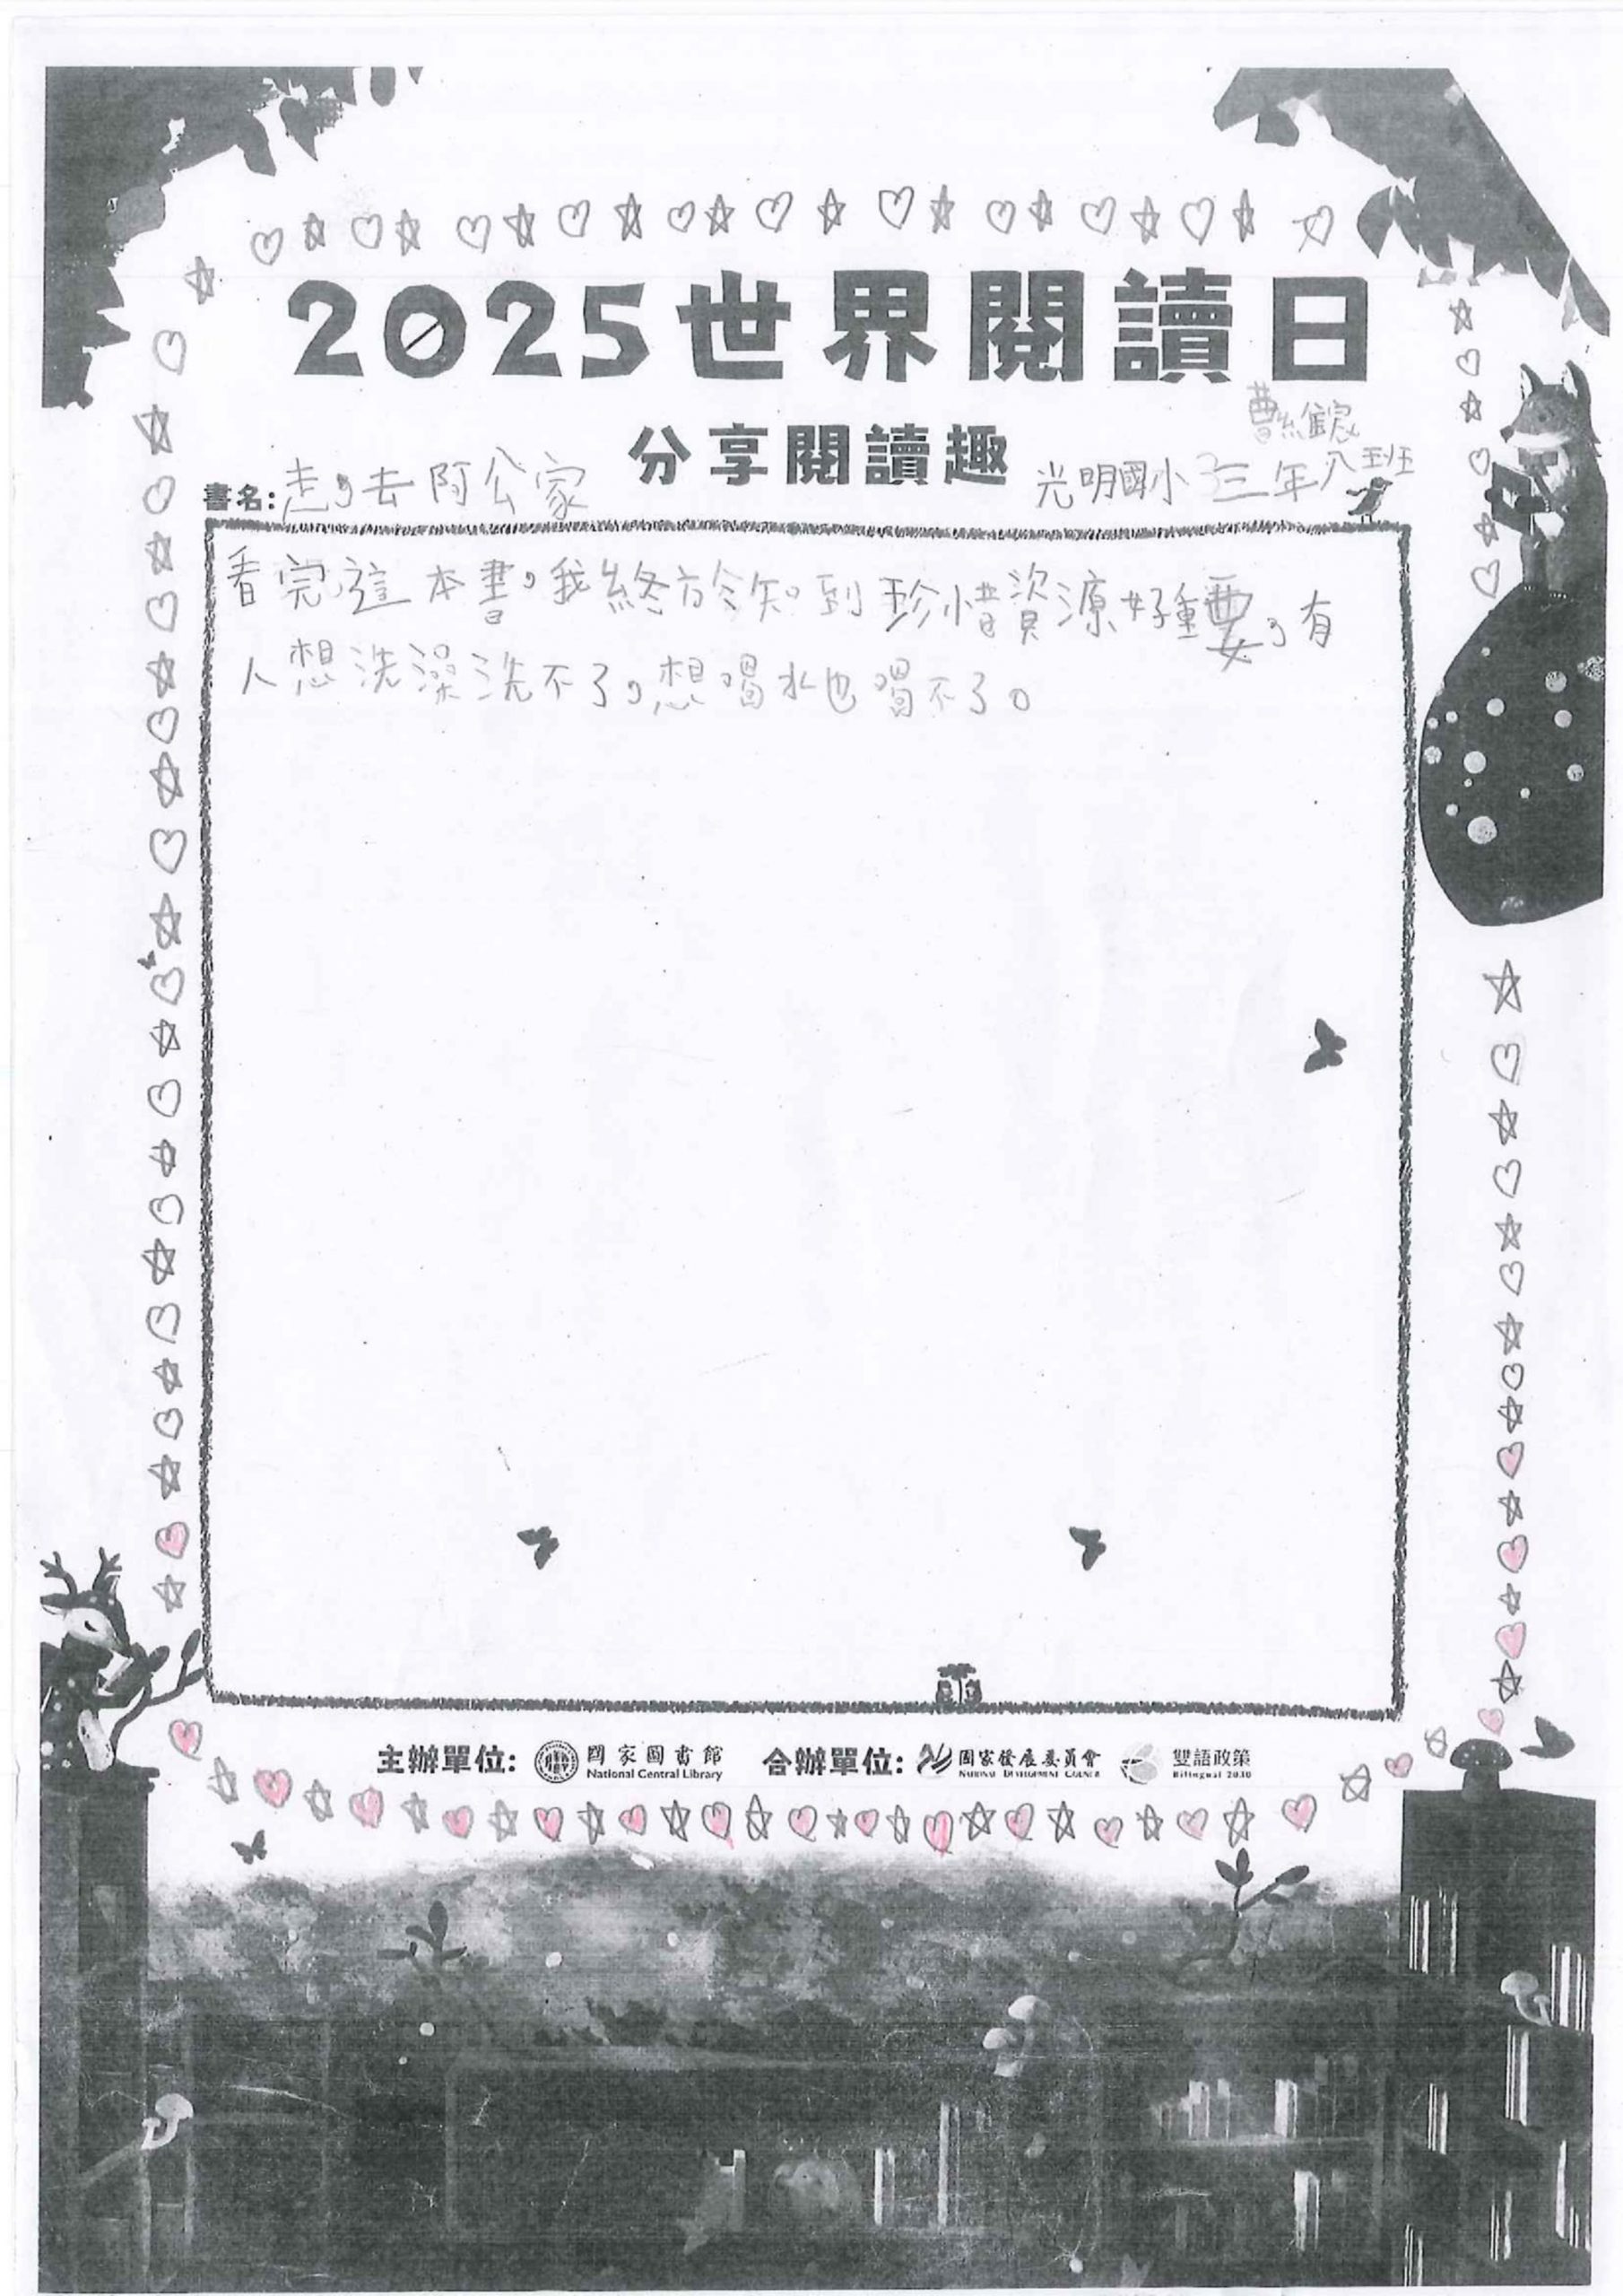 2025世界閱讀日
分享閱讀趣
書名:走,去阿公家
光明國小三年八班
看完這本書,我終於知到珍惜資源好重要,有
人想洗澡洗不了,想喝水也喝不了。
主辦單位: 國家圖書館 National Central Library 合辦單位: 國家發展委員會 NATIONAL DEVELOPMENT COUNCIL 雙語政策 Bilingual 2030